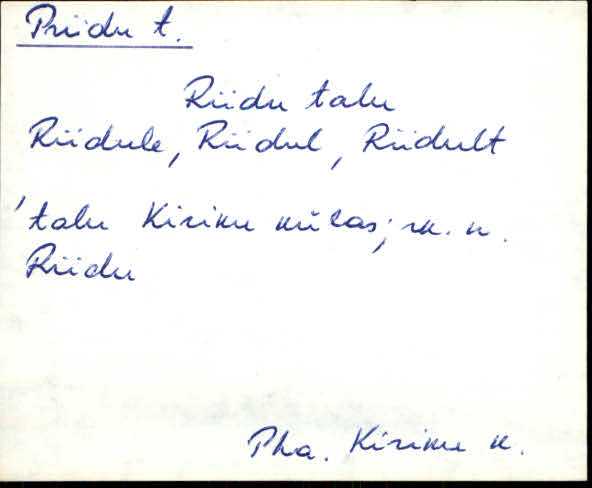 Priidu t.
Riidu talu
Riidule, Riidul, Riidult
'talu Kiriku külas; rk. n.
Riidu
Pha. Kiriku k.